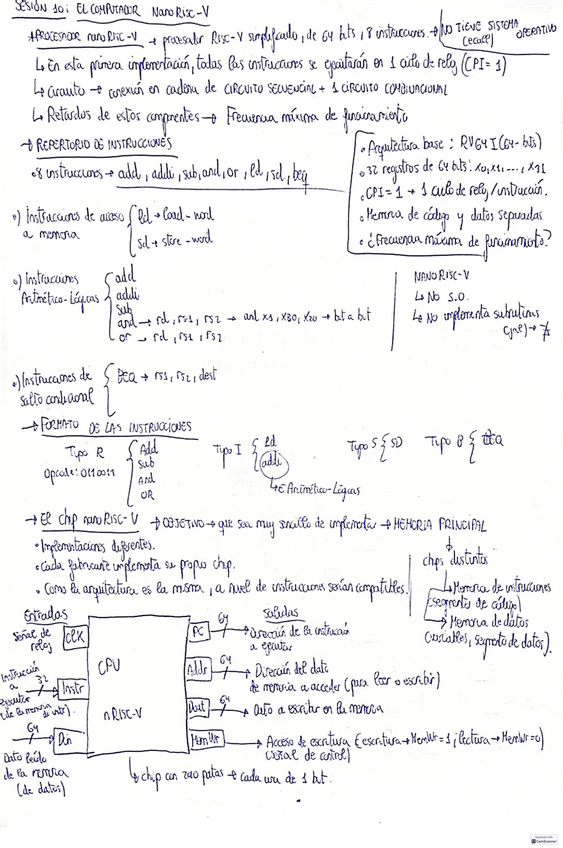 SESIÓN 10: EL COMPUTADOR NanoRisc-V
PROCESADOR nanoRISC-V → procesador RISC-V simplificado, de 64 bits, 8 instrucciones. → NO TIENE SISTEMA OPERATIVO (ecall)
↳ En esta primera implementación, todas las instrucciones se ejecutarán en 1 ciclo de reloj (CPI=1)
↳ Circuito → conexión en cadena de CIRCUITO SECUENCIAL + 1 CIRCUITO COMBINACIONAL
↳ Retardos de estos componentes → Frecuencia máxima de funcionamiento
→ REPERTORIO DE INSTRUCCIONES
8 instrucciones → add, addi, sub, and, or, ld, sd, beq
• Arquitectura base: RV64I (64-bits)
• 32 registros de 64 bits: x0, x1, ..., x31
• CPI=1 → 1 ciclo de reloj/instrucción.
• Memoria de código y datos separadas
• ¿Frecuencia máxima de funcionamiento?
•) Instrucciones de acceso a memoria
ld → load-word
sd → store-word
•) Instrucciones Aritmético-Lógicas
add
addi
sub
and → rd, rs1, rs2 → and x1, x30, x20 → bit a bit
or → rd, rs1, rs2
NANORISC-V
↳ No S.O.
↳ No implementa subrutinas
•) Instrucciones de salto condicional
BEQ → rs1, rs2, dest
→ FORMATO DE LAS INSTRUCCIONES
Tipo R
Opcode: 0110011
Add
Sub
And
OR
Tipo I
ld
addi
↳ ∈ Aritmético-Lógicas
Tipo S { SD
Tipo B { BEQ
→ El chip nanoRISC-V → OBJETIVO → que sea muy sencillo de implementar → MEMORIA PRINCIPAL
• Implementaciones diferentes.
• Cada fabricante implementa su propio chip.
• Como la arquitectura es la misma, a nivel de instrucciones serían compatibles.
chips distintos
↳ Memoria de instrucciones
(segmento de código)
↳ Memoria de datos
(variables, segmento de datos).
Entradas
Señal de reloj
CLK
Instrucción a ejecutar
(de la memoria
32
Instr
64
Din
Dato leído de la memoria (de datos)
CPU
nRISC-V
Salidas
PC 64 → Dirección de la instrucción a ejecutar
Addr 64 → Dirección del dato de memoria a acceder (para leer o escribir)
Dout 64 → Dato a escribir en la memoria
MemWr → Acceso de escritura (escritura → MemWr=1; lectura → MemWr=0)
(señal de control)
↳ chip con 240 patas → cada una de 1 bit.
CamScanner